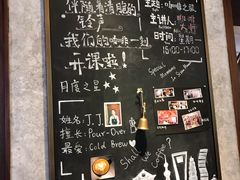 伴随着清脆的
铃声
我们的咖啡一刻
开课啦!
主题:咖啡之旅
主讲人:
时间:星期一
15:00-17:00
Special
Moment
月度之星
姓名:丁丁
擅长:Pour-Over
最爱:Cold Brew
Shall
we
Coffee?